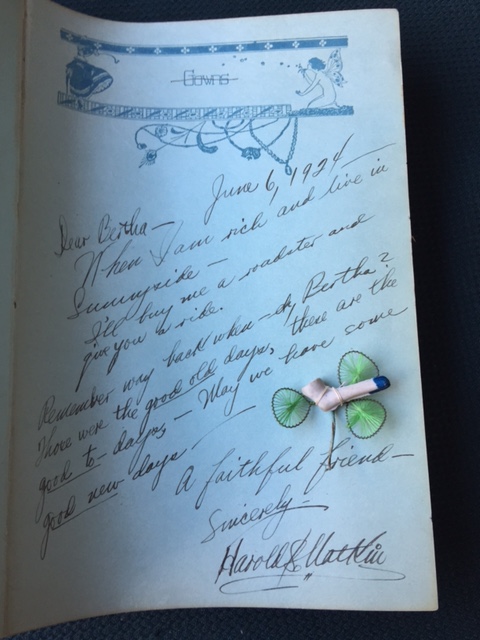 Gowns
June 6, 1924
Dear Bertha—
When I am rich and live in
Sunnyside —
I'll buy me a roadster and
give you a ride.
Remember way back when — eh, Bertha?
Those were the good old days, these are the
good to-dayes — May we have some
good new days —
A faithful friend—
Sincerely—
Harold